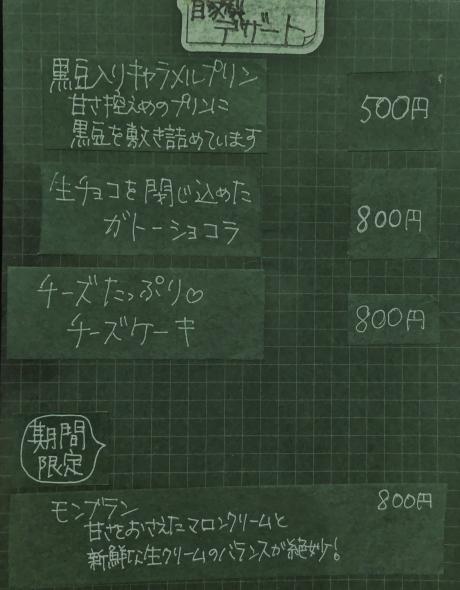 自家製
デザート
黒豆入りキャラメルプリン
甘さ控えめのプリンに
黒豆を敷き詰めています
500円
生チョコを閉じ込めた
ガトーショコラ
800円
チーズたっぷり♡
チーズケーキ
800円
期間
限定
モンブラン
800円
甘さをおさえたマロンクリームと
新鮮な生クリームのバランスが絶妙!